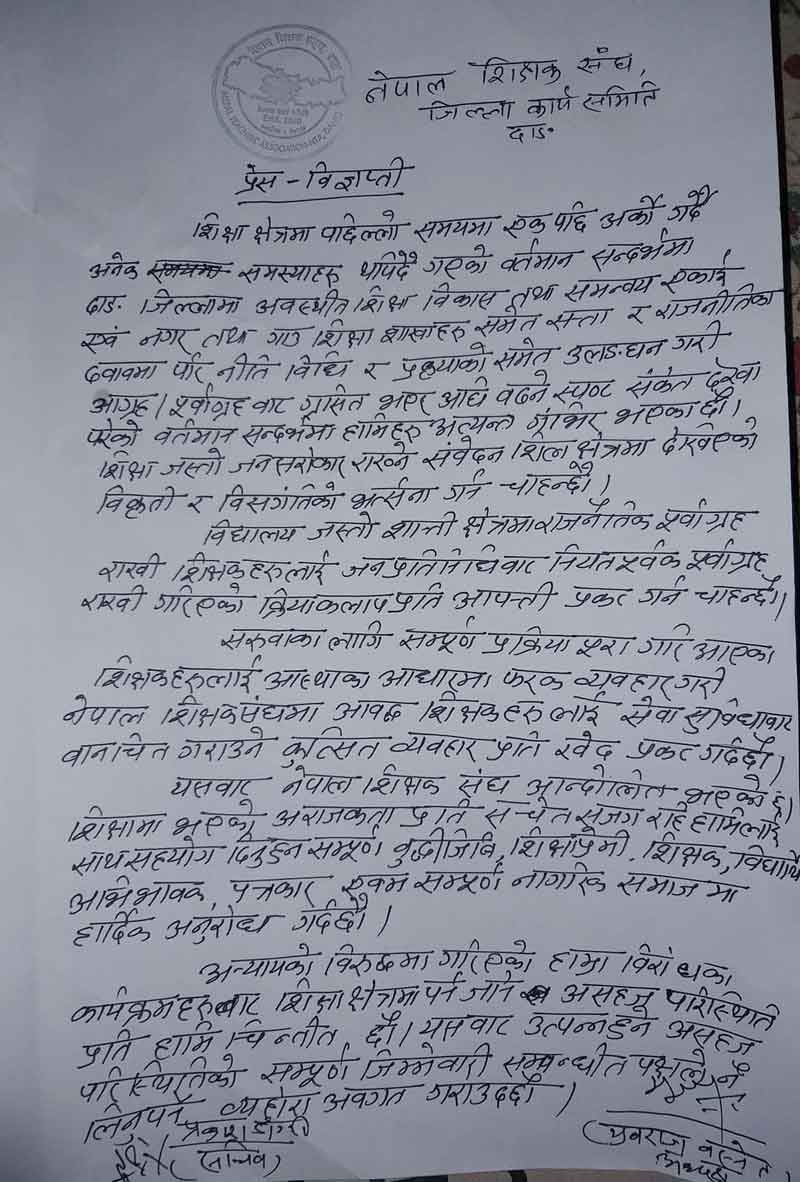 नेपाल शिक्षक संघ, दाङ
NEPAL TEACHERS' ASSOCIATION-NTA, DANG
नेपाल शिक्षक संघ,
जिल्ला कार्य समिति
दाङ
प्रेस - विज्ञप्ती
शिक्षा क्षेत्रमा पछिल्लो समयमा एक पछि अर्को गर्दै
अनेक समस्याहरु थपिदै गएको वर्तमान सन्दर्भमा
दाङ जिल्लामा अवस्थीत शिक्षा विकास तथा समन्वय एकाई
एवं नगर तथा गाउ शिक्षा शाखाहरु समेत सत्ता र राजनीतिका
दवावमा परि नीति विधि र प्रक्रयाको समेत उलङघन गरी
आग्रह/पूर्वाग्रह वाट ग्रसित भएर अघि वढने स्पष्ट संकेत देखा
परेको वर्तमान सन्दर्भमा हामिहरु अत्यन्त गंभिर भएका छौ।
शिक्षा जस्तो जनसरोकार राख्ने संवेदन शिल क्षेत्रमा देखिएको
विकृती र विसगंतिको भर्त्सना गर्न चाहन्छौ।
विद्यालय जस्तो शान्ती क्षेत्रमा राजनैतिक पूर्वाग्रह
राखी शिक्षकहरुलाई जनप्रतिनिधिवाट नियतपूर्वक पूर्वाग्रह
राखी गरिएको क्रियाकलाप प्रति आपत्ती प्रकट गर्न चाहन्छौ।
सरुवाका लागि सम्पूर्ण प्रक्रिया पूरा गरि आएका
शिक्षकहरुलाई आस्थाका आधारमा फरक व्यवहार गरी
नेपाल शिक्षक संघमा आवद्ध शिक्षकहरु लाई सेवा सुविधावाट
वानाचित गराउने कुत्सित व्यवहार प्रति खेद प्रकट गर्दछौ।
यसवाट नेपाल शिक्षक संघ आन्दोलित भएको छ।
शिक्षामा भएको अराजकता प्रति सचेत सजग रहि हामिलाई
साथ सहयोग दिनुहुन सम्पूर्ण वुद्धीजिवि, शिक्षाप्रेमी, शिक्षक, विद्यार्थि
अभिभावक, पत्रकार एवम सम्पूर्ण नागरिक समाज मा
हार्दिक अनुरोध गर्दछौ।
अन्यायको विरुद्धमा गरिएको हाम्रा विरोधका
कार्यक्रमहरुवाट शिक्षा क्षेत्रमा पर्न जाने असहज परिस्थिति
प्रति हामि चिन्तीत छौ। यसवाट उत्पन्नहुने असहज
परिस्थितिको सम्पूर्ण जिम्मेवारी सम्वन्धीत पक्षले नै
लिनुपर्ने व्यहोरा अवगत गराउदछौ।
प्रकाश डाँगी
(सचिव)
युवराज वस्नेत
अध्यक्ष